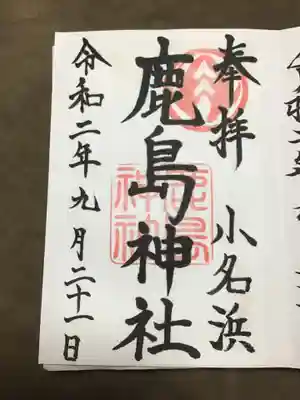 奉拝 小名浜
鹿島神社
鹿島
神社
令和二年九月二十一日